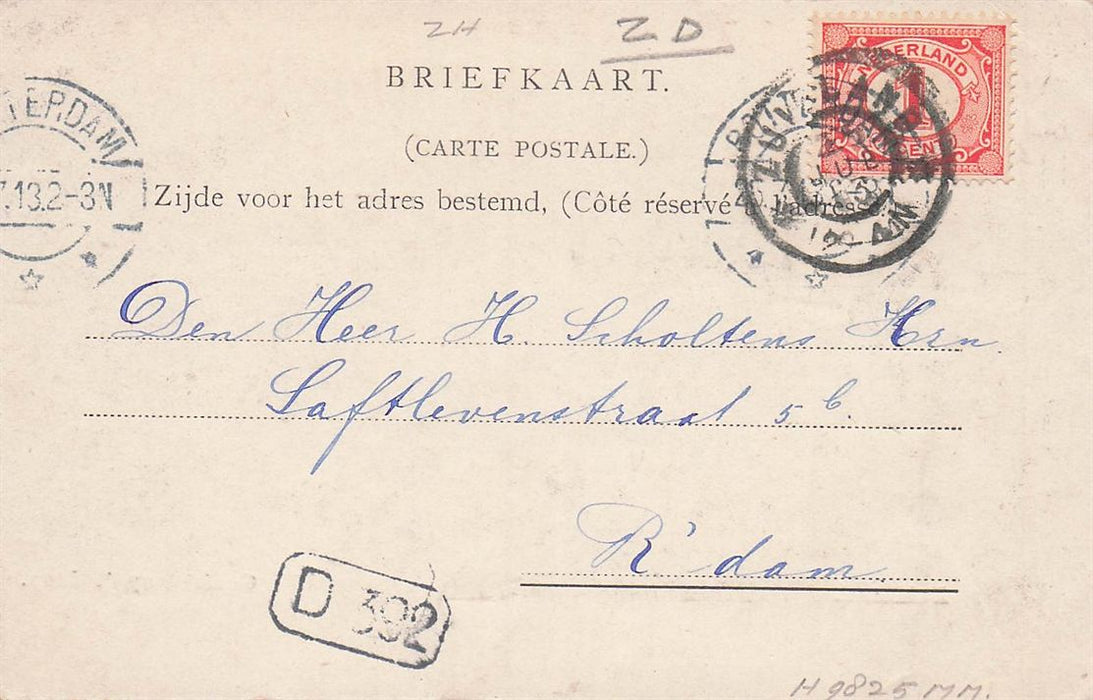 ZH ZD
BRIEFKAART.
(CARTE POSTALE.)
Zijde voor het adres bestemd, (Côté réservé à l'adresse.)
NEDERLAND
1
CENT
ZUIDLAND
TERDAM
7.13.2-3N
Den Heer H. Scholtens Hrn
Saftlevenstraat 5b.
R'dam
D 392
H 9825 MM.